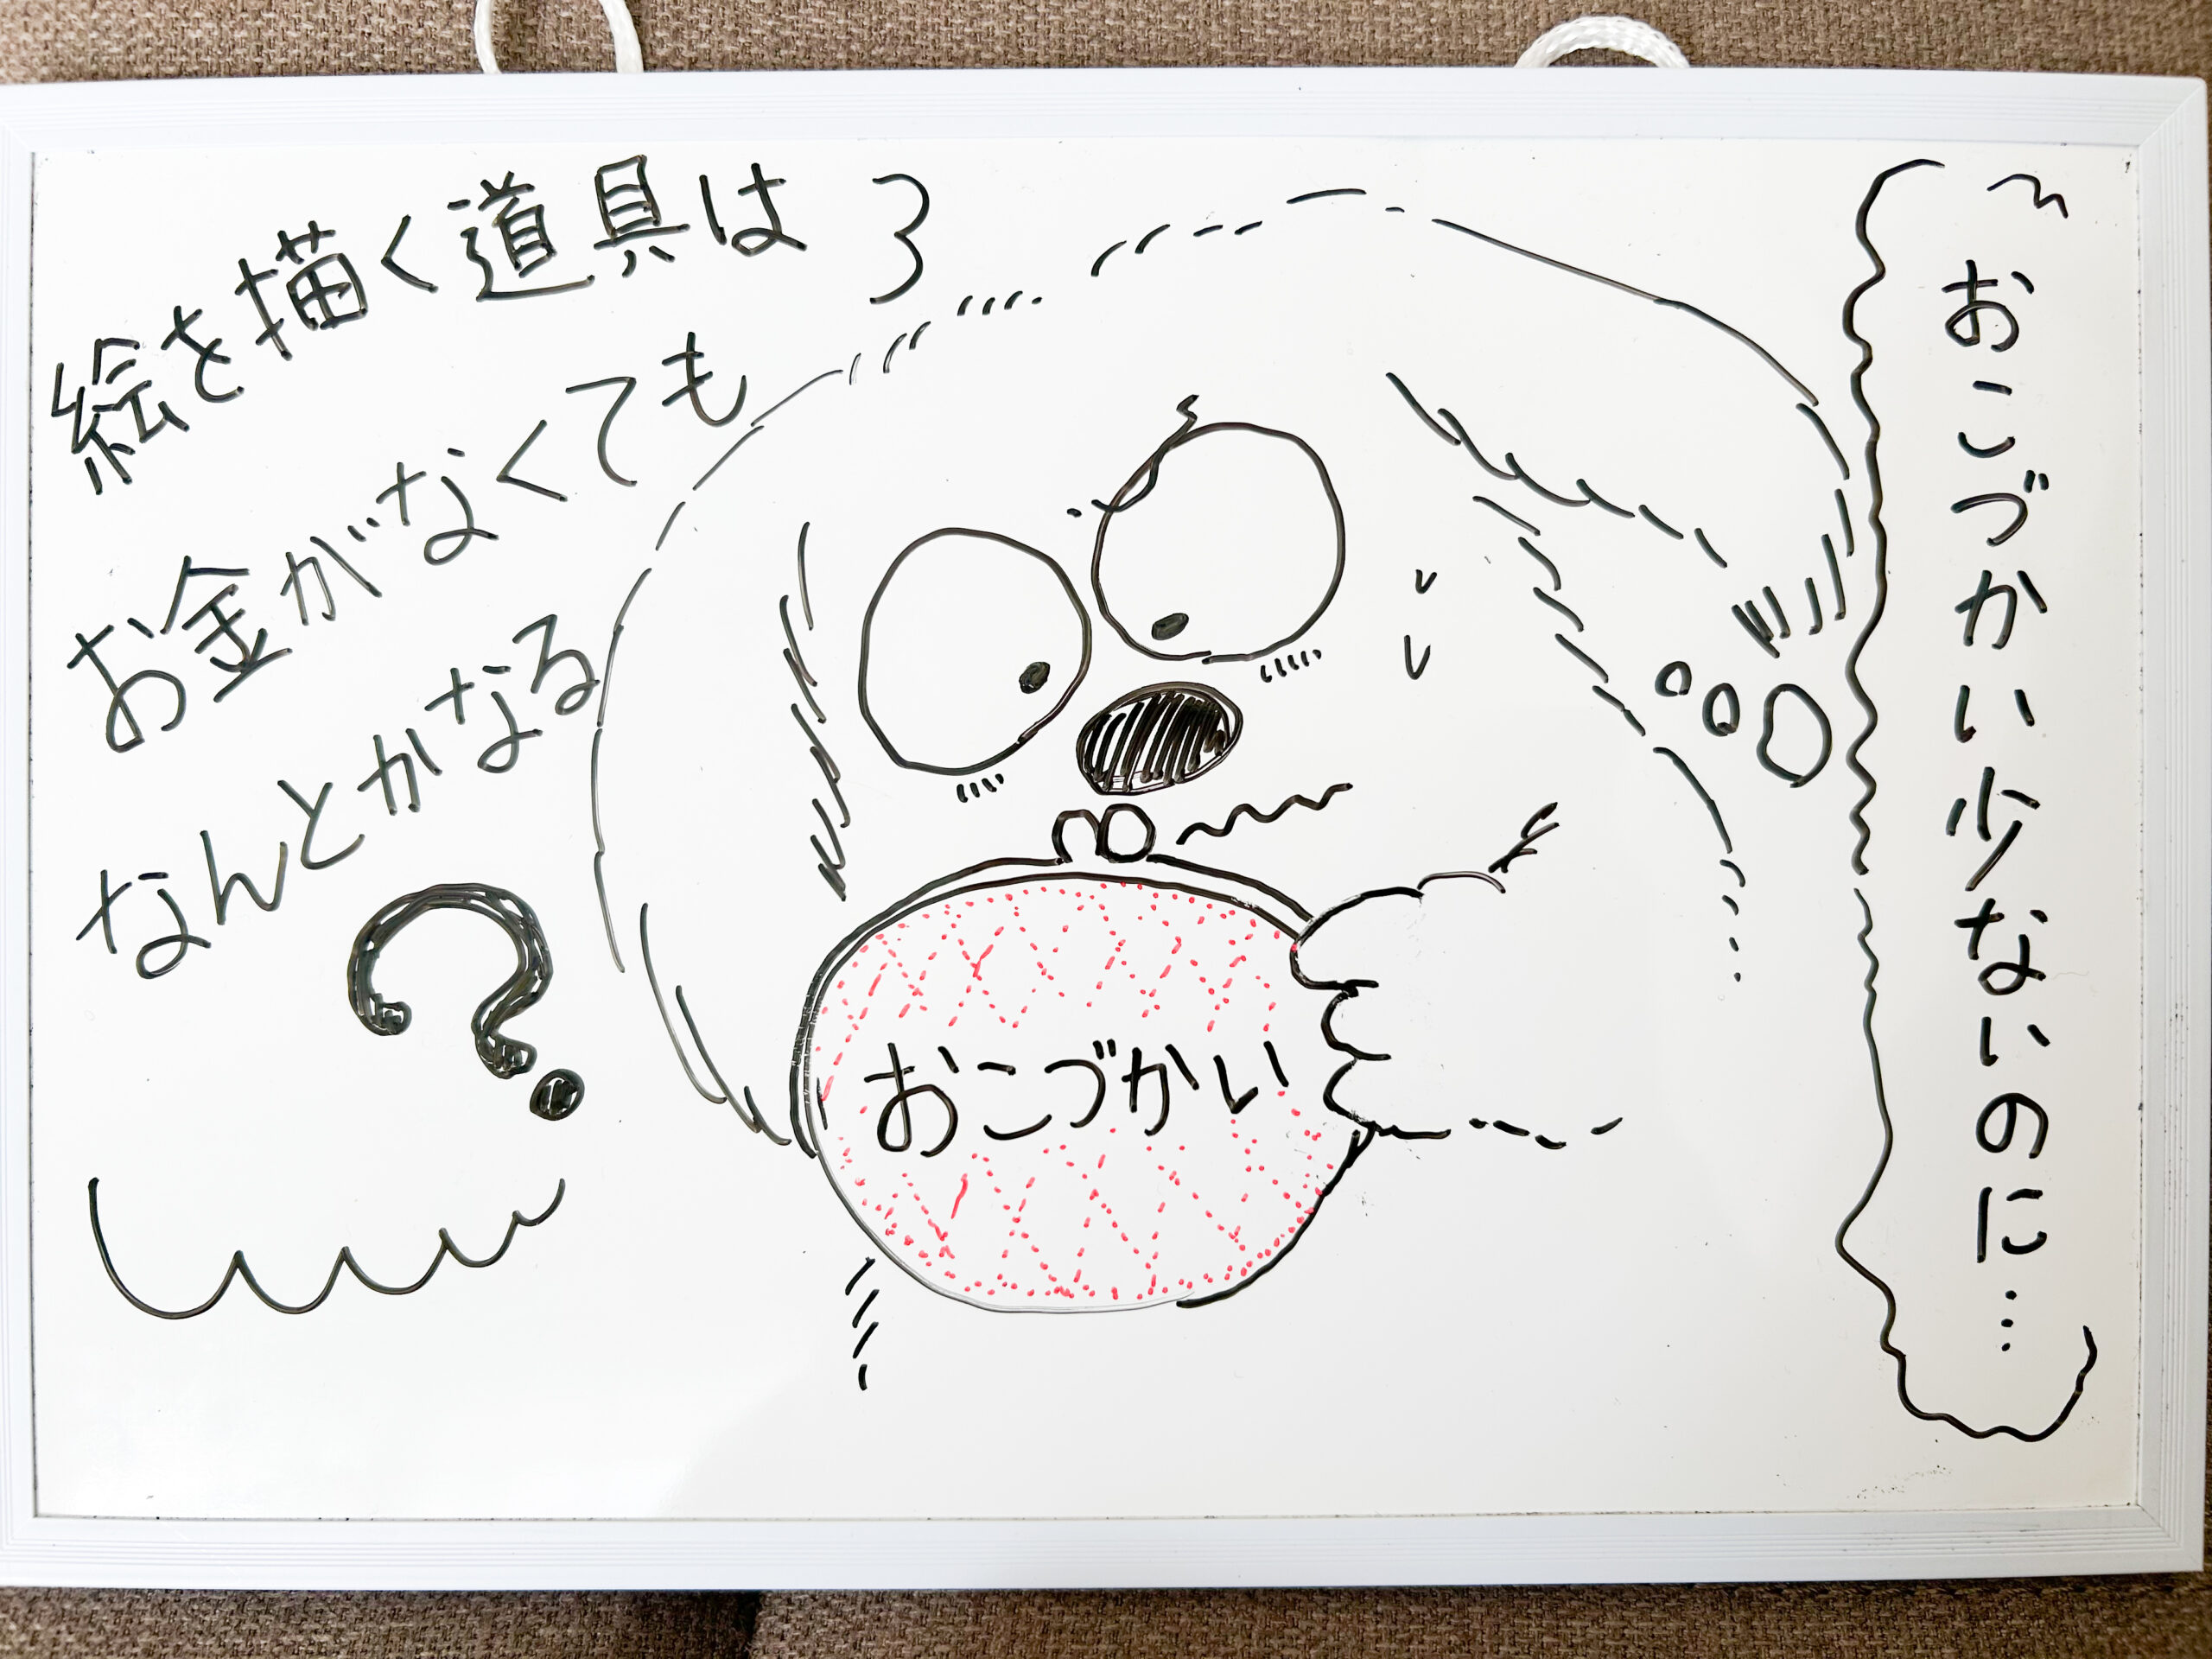 絵を描く道具は
お金がなくても
なんとかなる
?
おこづかい
おこづかい少ないのに…